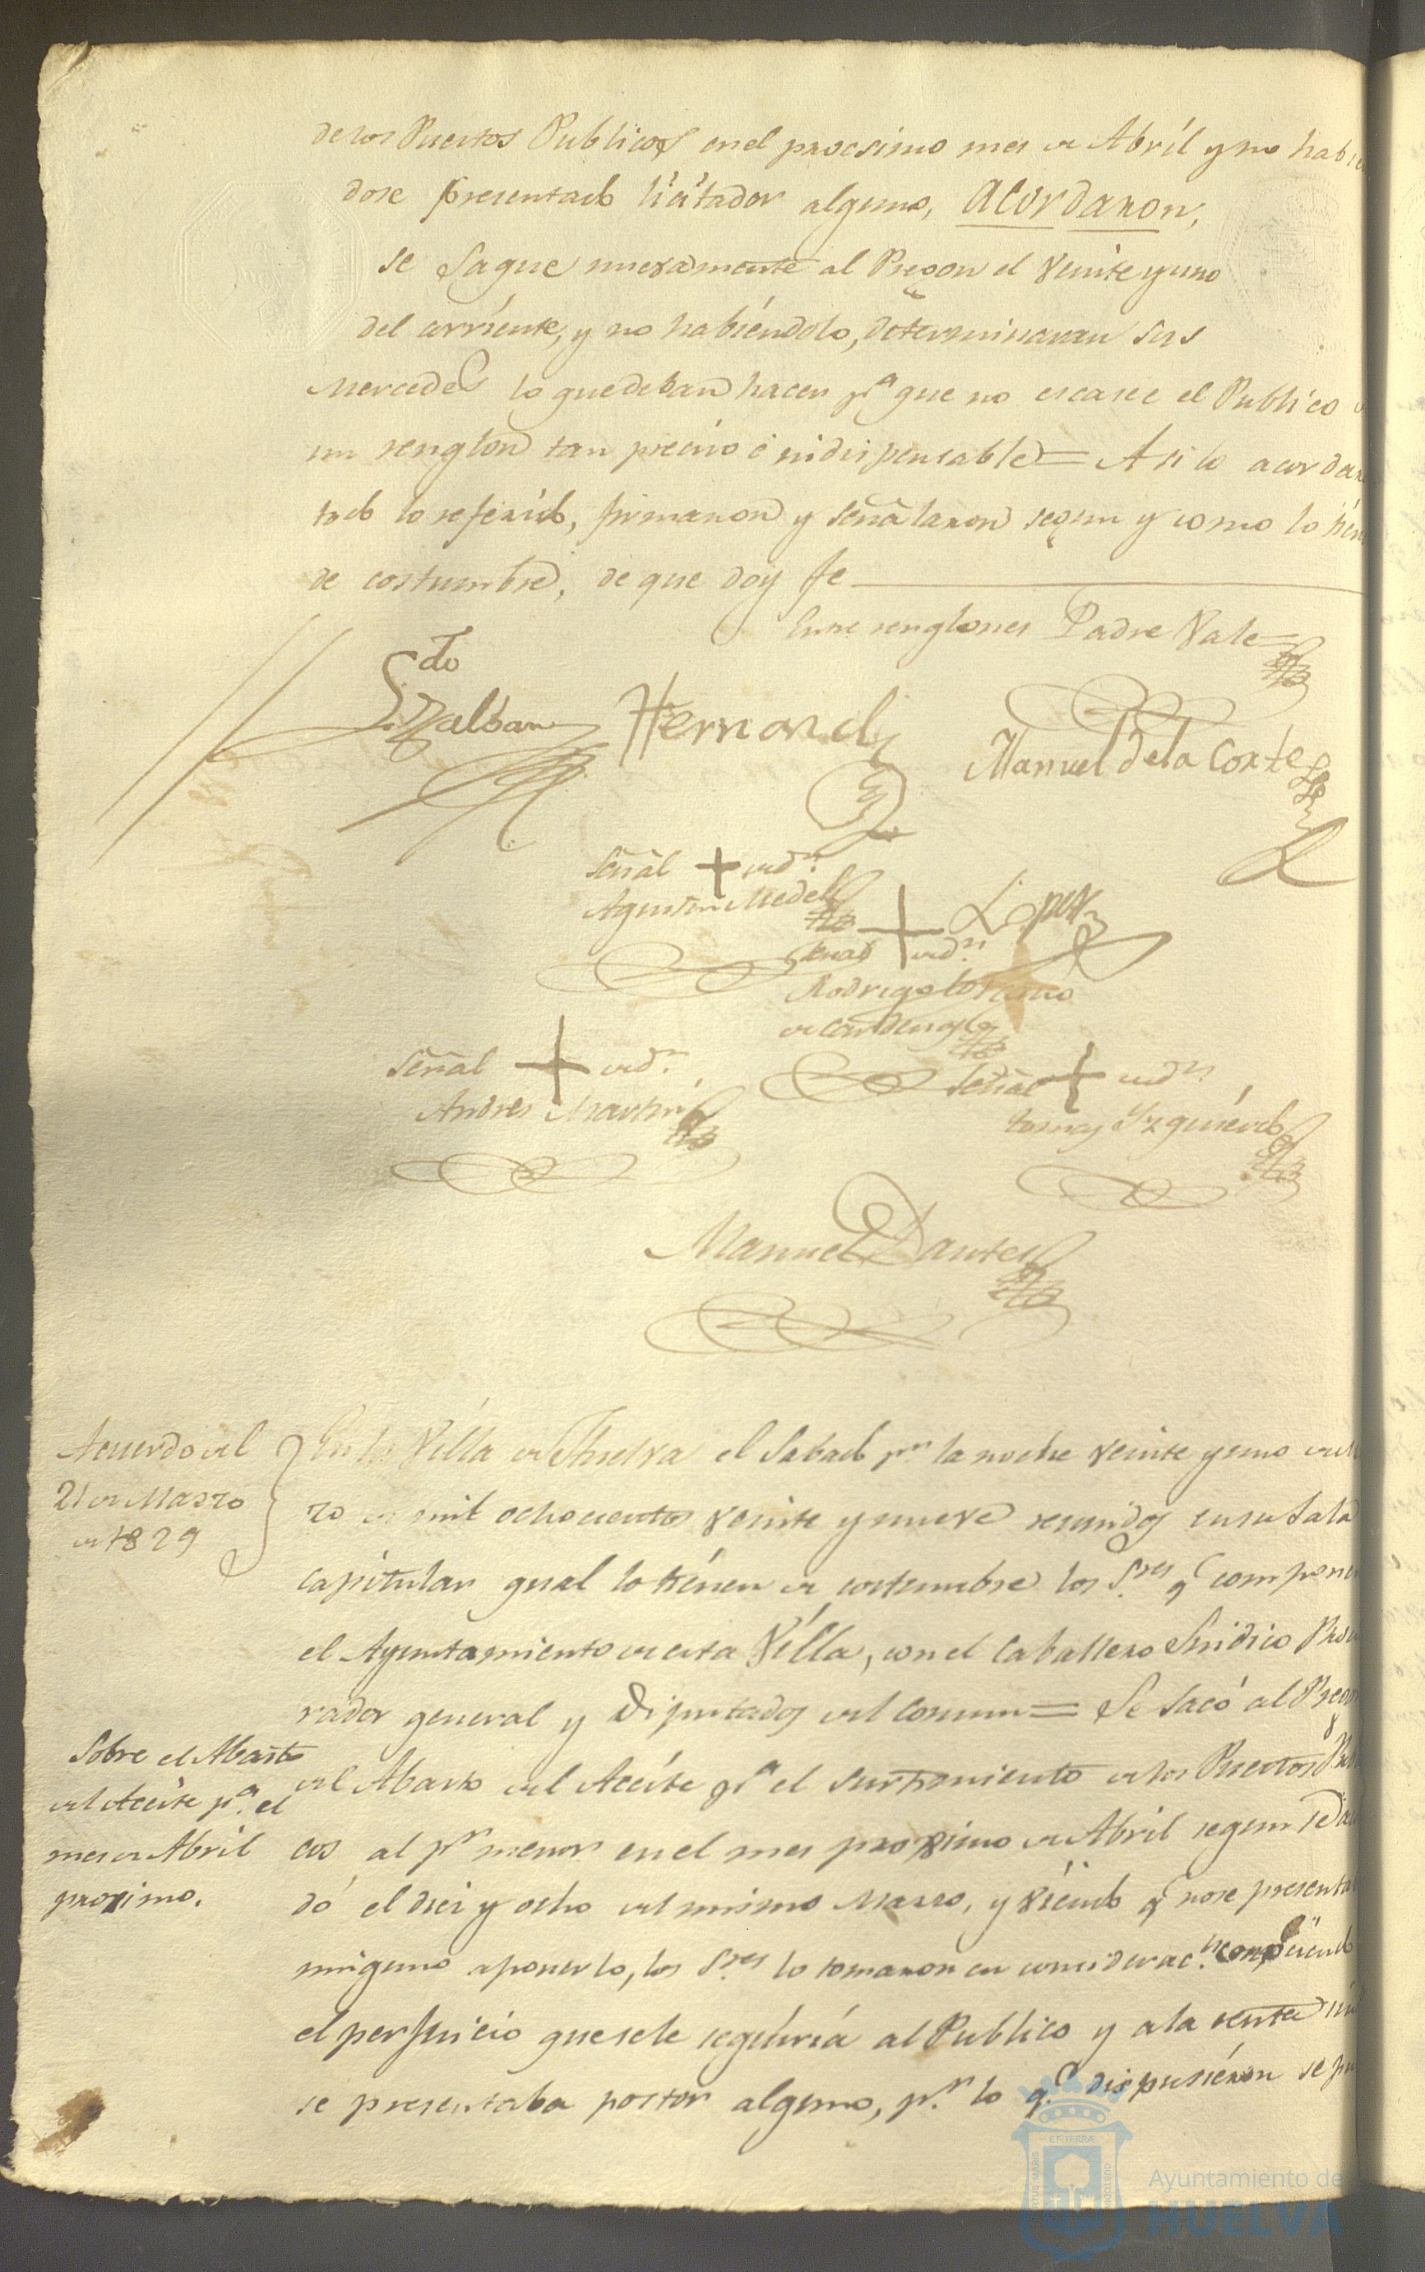 de los Puestos Publicos en el procsimo mes de Abríl y no habie
dose presentado licitador alguno, Acordaron,
se saque nuevamente al Pregon el veinte y uno
del corríente, y no habiéndolo, determinaran sus
Mercedes lo que deban hacer pª que no escasee el Publico
un renglon tan preciso é indispensable = Asi lo acordar
todo lo referido, firmaron y señalaron segun y como lo tién
de costumbre, de que doy fe
Entre renglones Padre Vale
Hernand
Manuel de la Corte
Señal + del Sr
Agustin Medel
Lopez
Señal + del Sr
Rodrigo
Señal + del Sr
Andres Martin
Señal + del Sr
tomas Yzquiérdo
Manuel Dantes
Acuerdo del
21 de Marzo
de 1829
En la Villa de Huelva el Sabado pr la noche veinte y uno de M
zo de mil ochocientos veinte y nueve reunidos en su Sala
capitular qual lo tiénen de costumbre los Sres q componen
el Ayuntamiento de esta Villa, con el Caballero Sindico Procu
rador general y Diputados del Comun = Se sacó al Pregon
Sobre el Abasto
del Aceite pª el
mes de Abril
proximo.
del Abasto del Aceite pª el surtimiento de los Puestos Pub
cos al pr menor en el mes proximo de Abril segun se acor
dó el diez y ocho del mismo Marzo, y viéndo q no se presentaba
ninguno aponerlo, los Sres lo tomaron en consideracn
el perjuicio que se le seguiría al Publico y a la renta
se presentaba postor alguno, pr lo q. dispusiéron se
ET TERRÆ
Ayuntamiento de
HUELVA